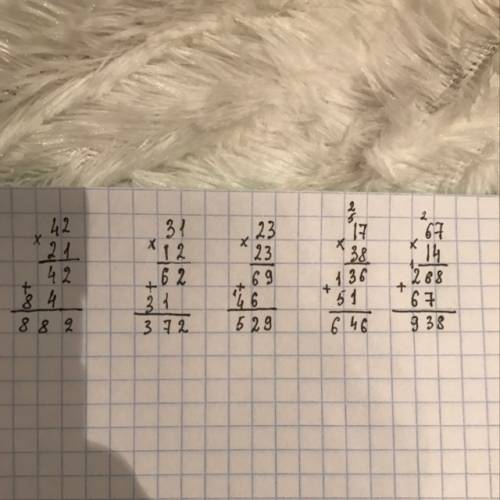 42
× 21
42
+ 84
882
31
× 12
62
+ 31
372
23
× 23
69
1
+ 46
529
2
5
17
× 38
136
+ 51
646
2
67
× 14
1
268
+ 67
938